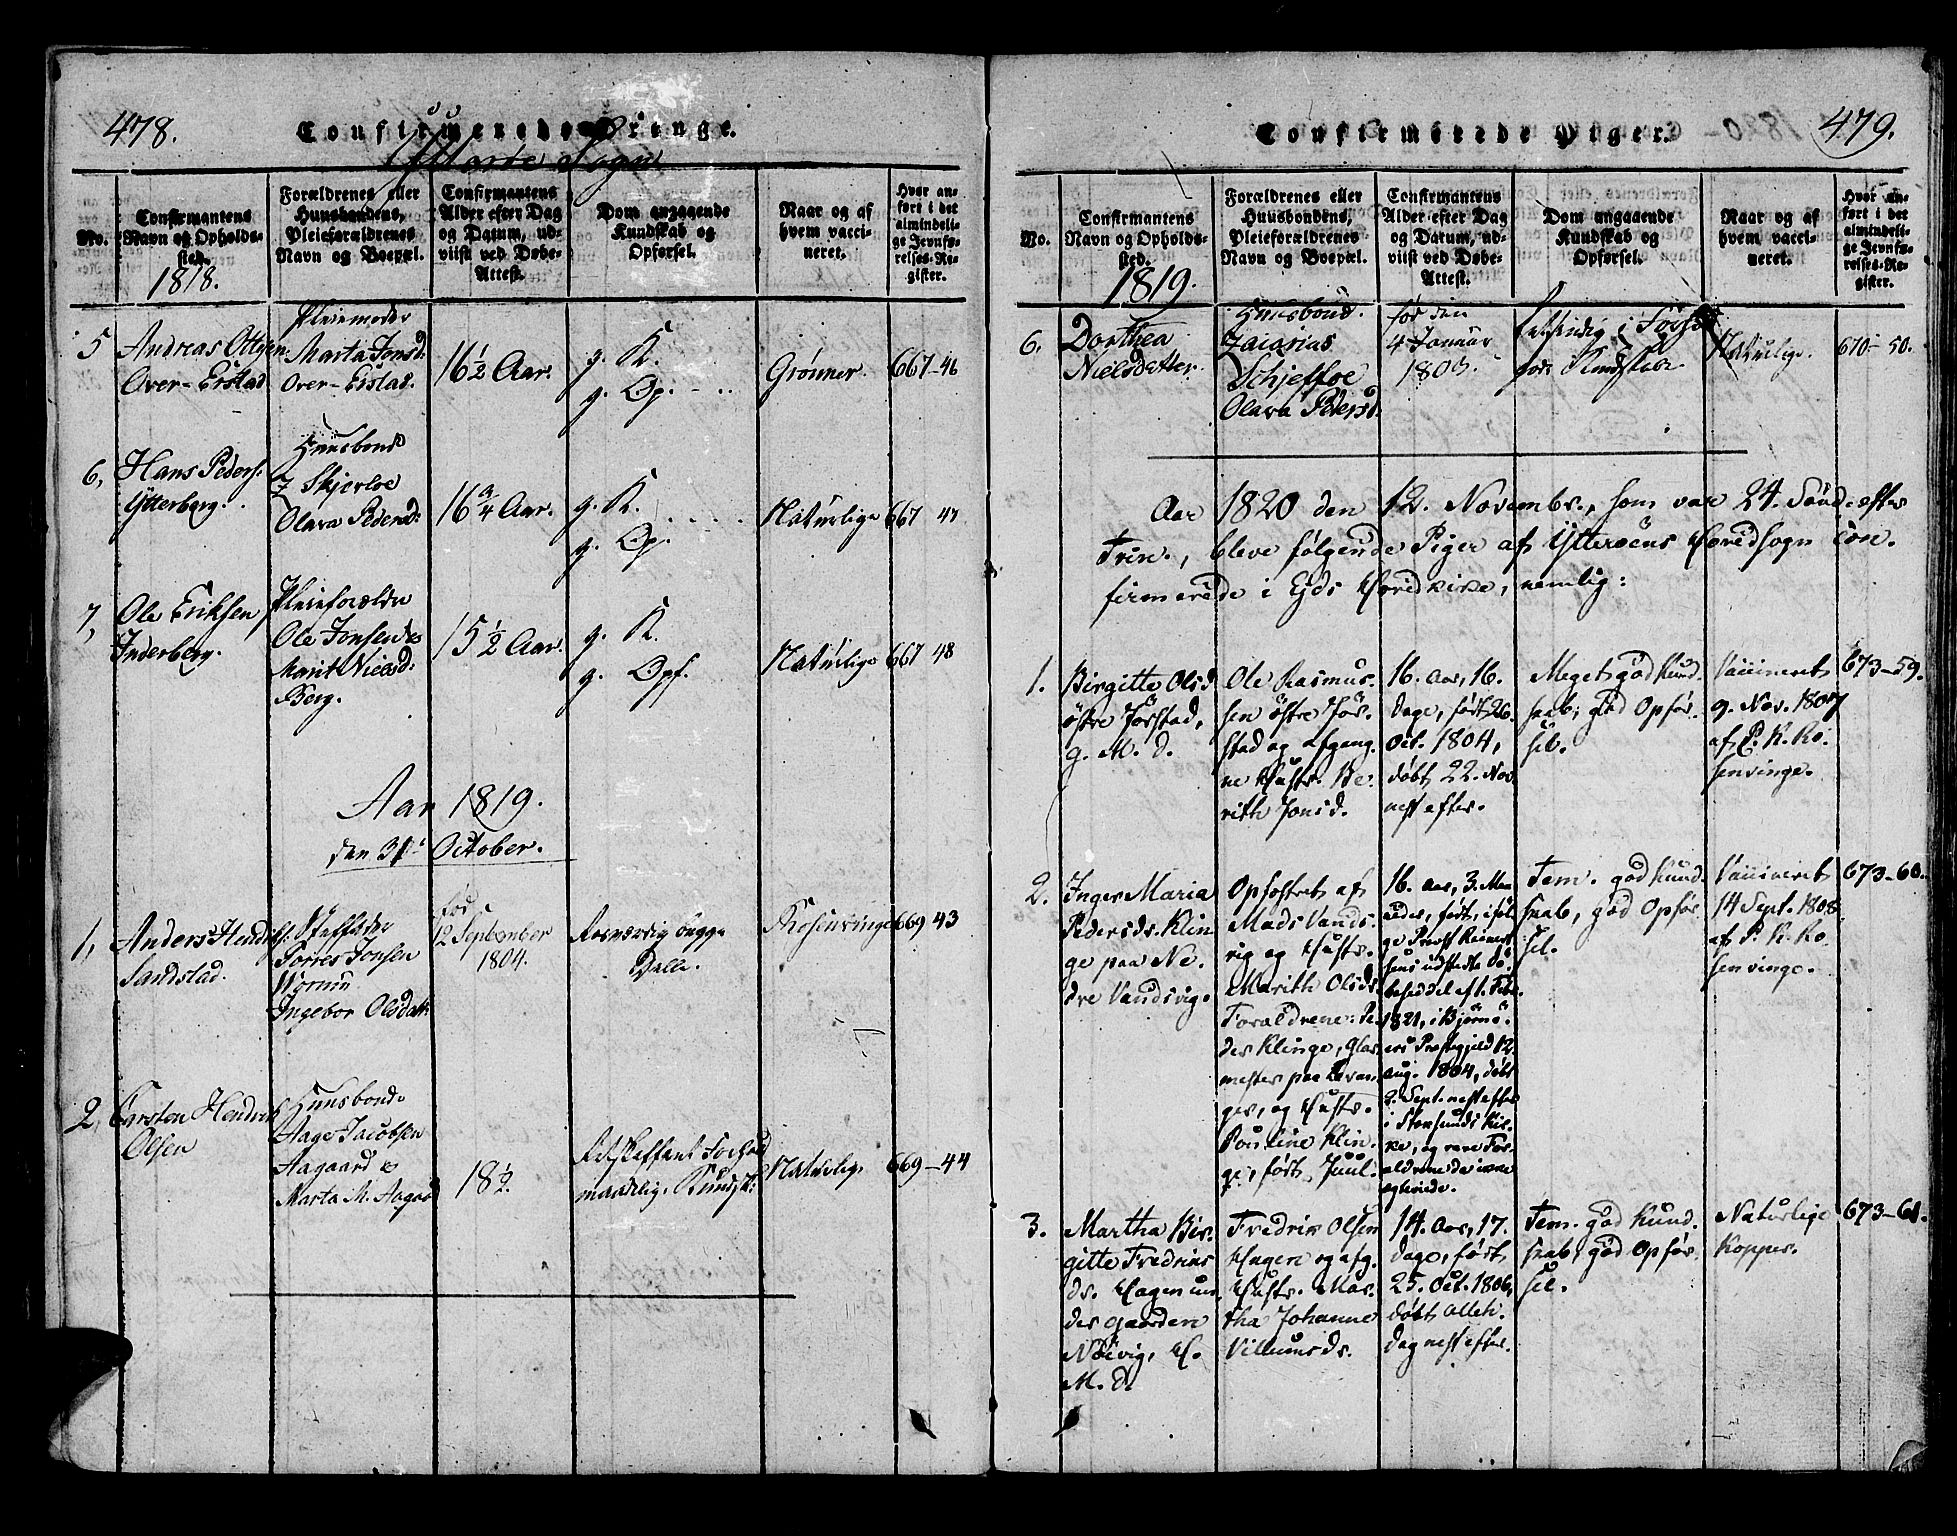 478.
Confirmerede Drenge.
Sogn
No.
Confirmantens
Navn og Opholds-
sted.
1818.
Forældrenes eller
Huusbondens,
Pleieforældrenes
Navn og Boepæl.
Confirmantens
Alder efter Dag
og Datum, ud-
viist ved Døbe-
Attest.
Dom angaaende
Kundskab og
Opførsel.
Naar og af
hvem vacci-
neret.
Hvor an-
ført i det
almindeli-
ge Jevnfø-
relses-Re-
gister.
5
Andreas Ottesen
Over-Eistad
Pleiemoder
Marta Jonsd:
Over-Eistad.
16 1/2 Aar.
g. K.
g. Op.
Grønner.
667-46
6,
Hans Peders.
Ytterberg.
Huusbond
Z Skjerloe
Olava Pedersd:
16 3/4 Aar.
g. K.
g. Op.
Naturlige
667 47
7,
Ole Eriksen
Inderberg.
Pleieforældre
Ole Jonsen &
Marit Nielsd:
Berg.
15 1/2 Aar.
g. K.
g. Opf.
Naturlige
667 48
Aar 1819.
den 31te October.
1,
Anders Hendrichs:
Sandstad.
Stiffader
Torres Jonsen
Ingebor Olsdatt:
fød
12 September
1804.
begge
Delle.
Rosenvinge
669 43
2,
Carsten Hendrich
Olsen
Huusbond
Aage Jacobsen
Aagaard &
Marta M. Aagard
18 1/2.
maadelig Kundsk:
Naturlig
669-44
479.
Confirmerede Piger.
No.
Confirmantens
Navn og Opholds-
sted.
1819.
Forældrenes eller
Huusbondens,
Pleieforældrenes
Navn og Boepæl.
Confirmantens
Alder efter Dag
og Datum, ud-
viist ved Døbe-
Attest.
Dom angaaende
Kundskab og
Opførsel.
Naar og af
hvem vacci-
neret.
Hvor an-
ført i det
almindeli-
ge Jevnfø-
relses-Re-
gister.
6.
Dorthea
Nielsdatter
Huusbond.
Zacarias
Schjefloe
Olava Pedersd.
fød den
4 Januar
1803.
Kundskab
Naturlige.
670-50.
Aar 1820 den 12. Novembr., som var 24. Sönd. efter
Trin., bleve følgende Piger af Ytterøens Hovedsogn con-
firmerede i Ejds Hovedkirke, nemlig:
1.
Birgitte Olsd
östre Jörstad,
g. M. d.
Ole Rasmus-
sen östre Jör-
stad og afgang-
ne Hustr. Be-
rith Jonsd.
16. Aar, 16.
Dage, født 26.
Oct. 1804,
døbt 22. Nov.
nest efter.
Meget god Kund-
skab, god Opför-
sel.
Vaccineret
9. Nov. 1807
af P. K. Ro-
senvinge.
673-59.
2.
Inger Maria
Pedersds. Klin
ge paa Ne-
dre Vandsvig.
Opfostret af
Mads Vands-
vig og Hustr.
Marith Olsds.
Forældrene: Pe-
der Klinge, Glar-
mester paa Levan-
ger, og Hustr.
Pouline Klin-
ge, født Juul.
16. Aar, 3. Maa-
neder, født, iföl-
ge Provst
sens udstedte Dö-
beseddel
1821, i Bjørnö-
ers Præstegjeld 12.
Aug. 1804, døbt
2. Sept. nest efter
i Storsunds Kir-
ke, og vare For-
ældrene da
egteviede.
Tem. god Kund-
skab, god Opför-
sel.
Vaccineret
14 Sept. 1808.
af P. K. Ro-
senvinge.
673-60.
3.
Martha Bir-
gitte Fredriks
ds. Hagen un-
der Gaarden
Nöevig, H.
M. d.
Fredrik Olsen
Hagen og afg.
Hustr. Mar-
tha Johanne
Villumsds.
14. Aar, 17.
Dage, født
25. Oct. 1806,
døbt Alleh.
Dag nest efter.
Tem. god Kund-
skab, god Opför-
sel.
Naturlige
Kopper.
673-61.